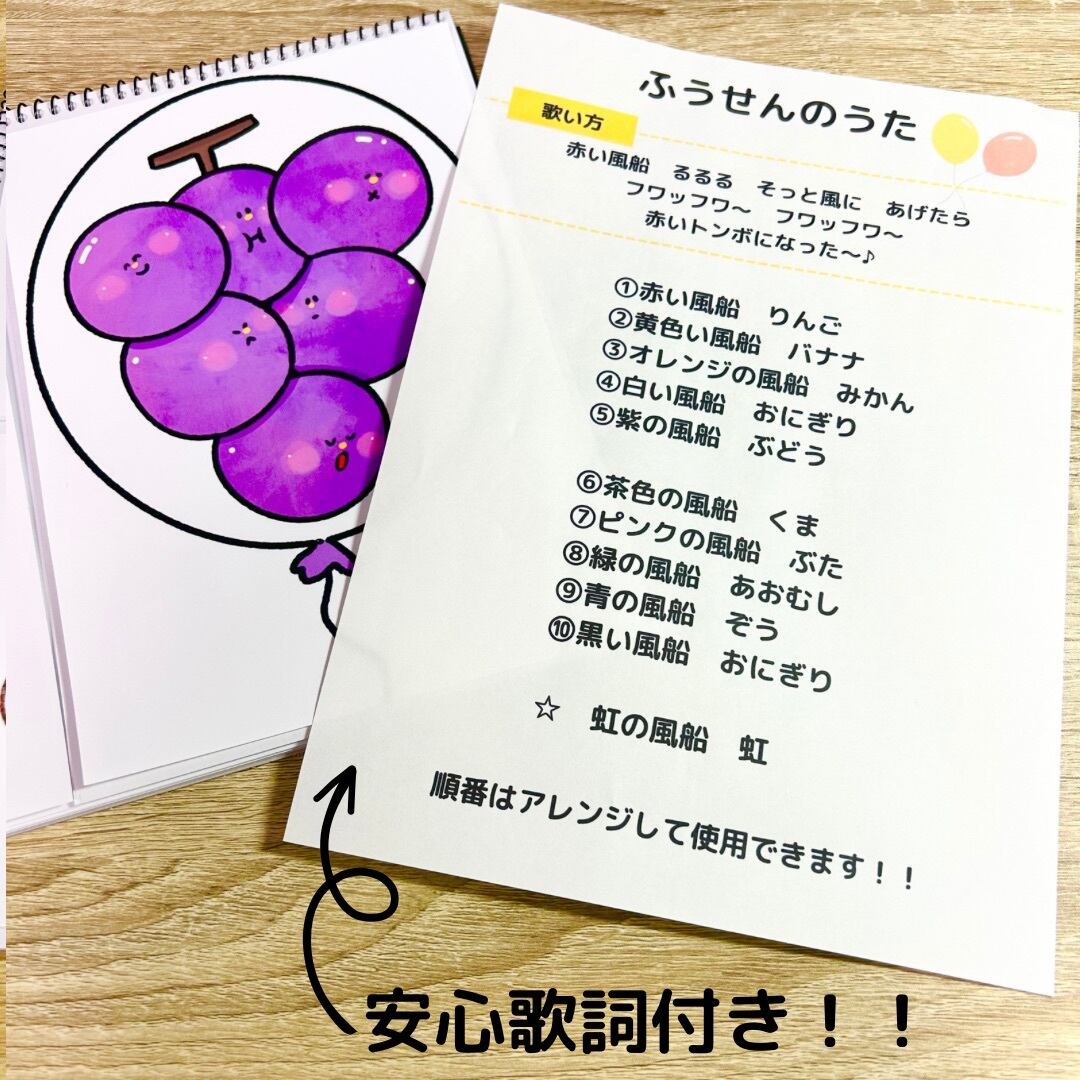 ふうせんのうた
歌い方
赤い風船 るるる そっと風に あげたら
フワッフワ～ フワッフワ～
赤いトンボになった～♪
①赤い風船 りんご
②黄色い風船 バナナ
③オレンジの風船 みかん
④白い風船 おにぎり
⑤紫の風船 ぶどう
⑥茶色の風船 くま
⑦ピンクの風船 ぶた
⑧緑の風船 あおむし
⑨青の風船 ぞう
⑩黒い風船 おにぎり
☆ 虹の風船 虹
順番はアレンジして使用できます！！
安心歌詞付き！！